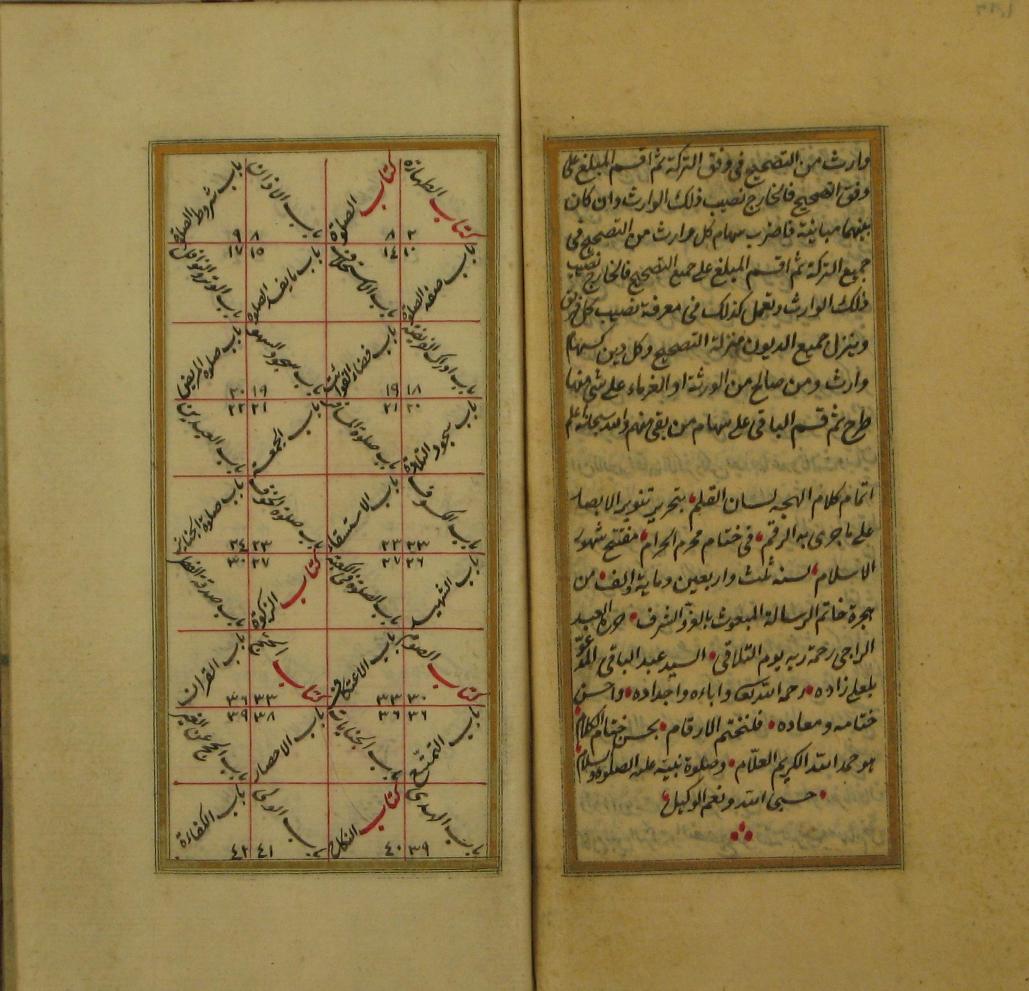 وارث من التصحيح فى وفق التركة ثم اقسم المبلغ على
وفق التصحيح فالخارج نصيب ذلك الوارث وان كان
بينهما مباينة فاضرب سهام كل وارث من التصحيح فى
جميع التركة ثم اقسم المبلغ على جميع التصحيح فالخارج نصيب
ذلك الوارث وتعمل كذلك فى معرفة نصيب كل فريق
وينزل جميع الديون منزلة التصحيح وكل دين كسهام
وارث ومن صالح من الورثة او الغرماء على شئ منها
طرح ثم قسم الباقى على سهام من بقى منهم والله سبحانه اعلم
اتمام كلام الهجه لسان القلم بتحرير تنوير الابصار
على ما جرى به الرقم فى ختام محرم الحرام مفتتح شهور
الاسلام لسنه ثلث واربعين وماية والف من
هجرة خاتم الرسالة المبعوث بالعز والشرف من العبد
الراجى رحمة ربه يوم التلاقى السيد عبد الباقى
زاده رحمه الله واباءه واجداده واحسن
ختامه ومعاده فلنختم الارقام بحسن ختام الكلام
هو حمد الله الكريم العلام وصلوة نبيه عليه الصلوة والسلام
حسبى الله ونعم الوكيل
كتاب الطهارة ٢
كتاب الصلوة ٨
باب الاذان ٨
باب شروط الصلوة ٩
باب صفة الصلوة ١٠
باب الاستخلاف ١٤
باب ما يفسد الصلوة ١٥
باب الوتر والنوافل ١٧
باب ادراك الفريضة ١٨
باب قضاء الفوائت ١٩
باب سجود السهو ١٩
باب صلوة المريض ٢٠
باب سجود التلاوة ٢٠
باب صلوة المسافر ٢١
باب الجمعة ٢١
باب العيدين ٢٢
باب الكسوف ٢٣
باب الاستسقاء ٢٣
باب صلوة الخوف ٢٣
باب صلوة الجنائز ٢٤
باب الشهيد ٢٦
باب الصلوة فى الكعبة ٢٧
كتاب الزكوة ٢٧
باب صدقة الفطر ٣٠
كتاب الصوم ٣٠
باب الاعتكاف ٣٣
كتاب الحج ٣٣
باب القران ٣٦
باب التمتع ٣٦
باب الجنايات ٣٦
باب الاحصار ٣٨
باب الحج عن الغير ٣٩
باب الهدى ٣٩
كتاب النكاح ٤٠
باب الولى ٤١
باب الكفاءة ٤٢